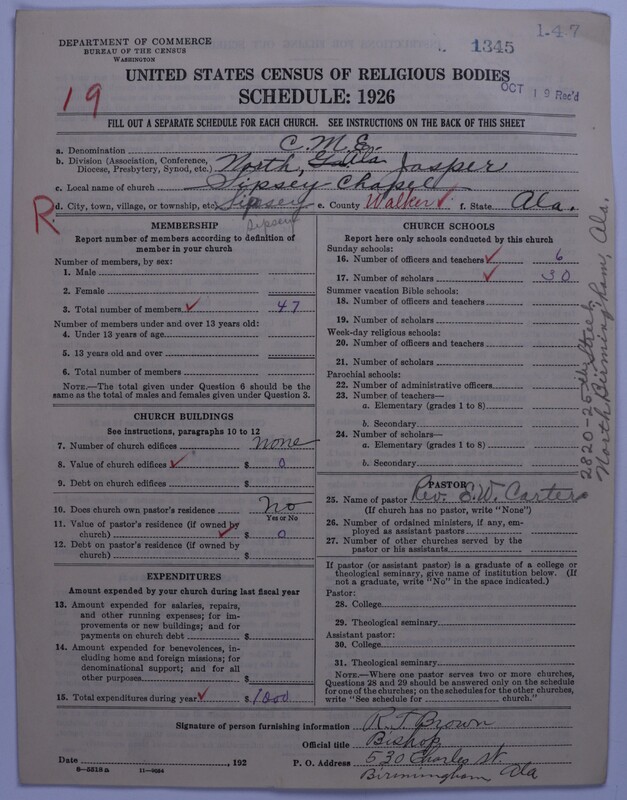 1-47
DEPARTMENT OF COMMERCE
BUREAU OF THE CENSUS
WASHINGTON
1345
UNITED STATES CENSUS OF RELIGIOUS BODIES
OCT 19 Rec'd
19
SCHEDULE: 1926
FILL OUT A SEPARATE SCHEDULE FOR EACH CHURCH. SEE INSTRUCTIONS ON THE BACK OF THIS SHEET
a. Denomination C.M.E.
b. Division (Association, Conference, Diocese, Presbytery, Synod, etc.) North Ala Jasper
c. Local name of church Sipsey Chapel
R
d. City, town, village, or township, etc. Sipsey e. County Walker f. State Ala.
Sipsey
MEMBERSHIP
Report number of members according to definition of
member in your church
Number of members, by sex:
1. Male
2. Female
3. Total number of members 47
Number of members under and over 13 years old:
4. Under 13 years of age
5. 13 years old and over
6. Total number of members
NOTE.—The total given under Question 6 should be the
same as the total of males and females given under Question 3.
CHURCH BUILDINGS
See instructions, paragraphs 10 to 12
7. Number of church edifices none
8. Value of church edifices $ 0
9. Debt on church edifices $
10. Does church own pastor's residence No
Yes or No
11. Value of pastor's residence (if owned by
church) $ 0
12. Debt on pastor's residence (if owned by
church) $
EXPENDITURES
Amount expended by your church during last fiscal year
13. Amount expended for salaries, repairs,
and other running expenses; for im-
provements or new buildings; and for
payments on church debt $
14. Amount expended for benevolences, in-
cluding home and foreign missions; for
denominational support; and for all
other purposes $
15. Total expenditures during year $ 1000
CHURCH SCHOOLS
Report here only schools conducted by this church
Sunday schools:
16. Number of officers and teachers 6
17. Number of scholars 30
Summer vacation Bible schools:
18. Number of officers and teachers
19. Number of scholars
Week-day religious schools:
20. Number of officers and teachers
21. Number of scholars
Parochial schools:
22. Number of administrative officers
23. Number of teachers—
a. Elementary (grades 1 to 8)
b. Secondary
24. Number of scholars—
a. Elementary (grades 1 to 8)
b. Secondary
PASTOR
25. Name of pastor Rev. E.W. Carter
(If church has no pastor, write "None")
26. Number of ordained ministers, if any, em-
ployed as assistant pastors
27. Number of other churches served by the
pastor or his assistants
If pastor (or assistant pastor) is a graduate of a college or
theological seminary, give name of institution below. (If
not a graduate, write "No" in the space indicated.)
Pastor:
28. College
29. Theological seminary
Assistant pastor:
30. College
31. Theological seminary
NOTE.—Where one pastor serves two or more churches,
Questions 28 and 29 should be answered only on the schedule
for one of the churches; on the schedules for the other churches,
write "See schedule for church."
2820-25th Street,
North Birmingham, Ala.
Signature of person furnishing information R.T. Brown
Official title Bishop
Date , 192 P. O. Address 530 Charles St.
Birmingham Ala
8—5518a 11—9034